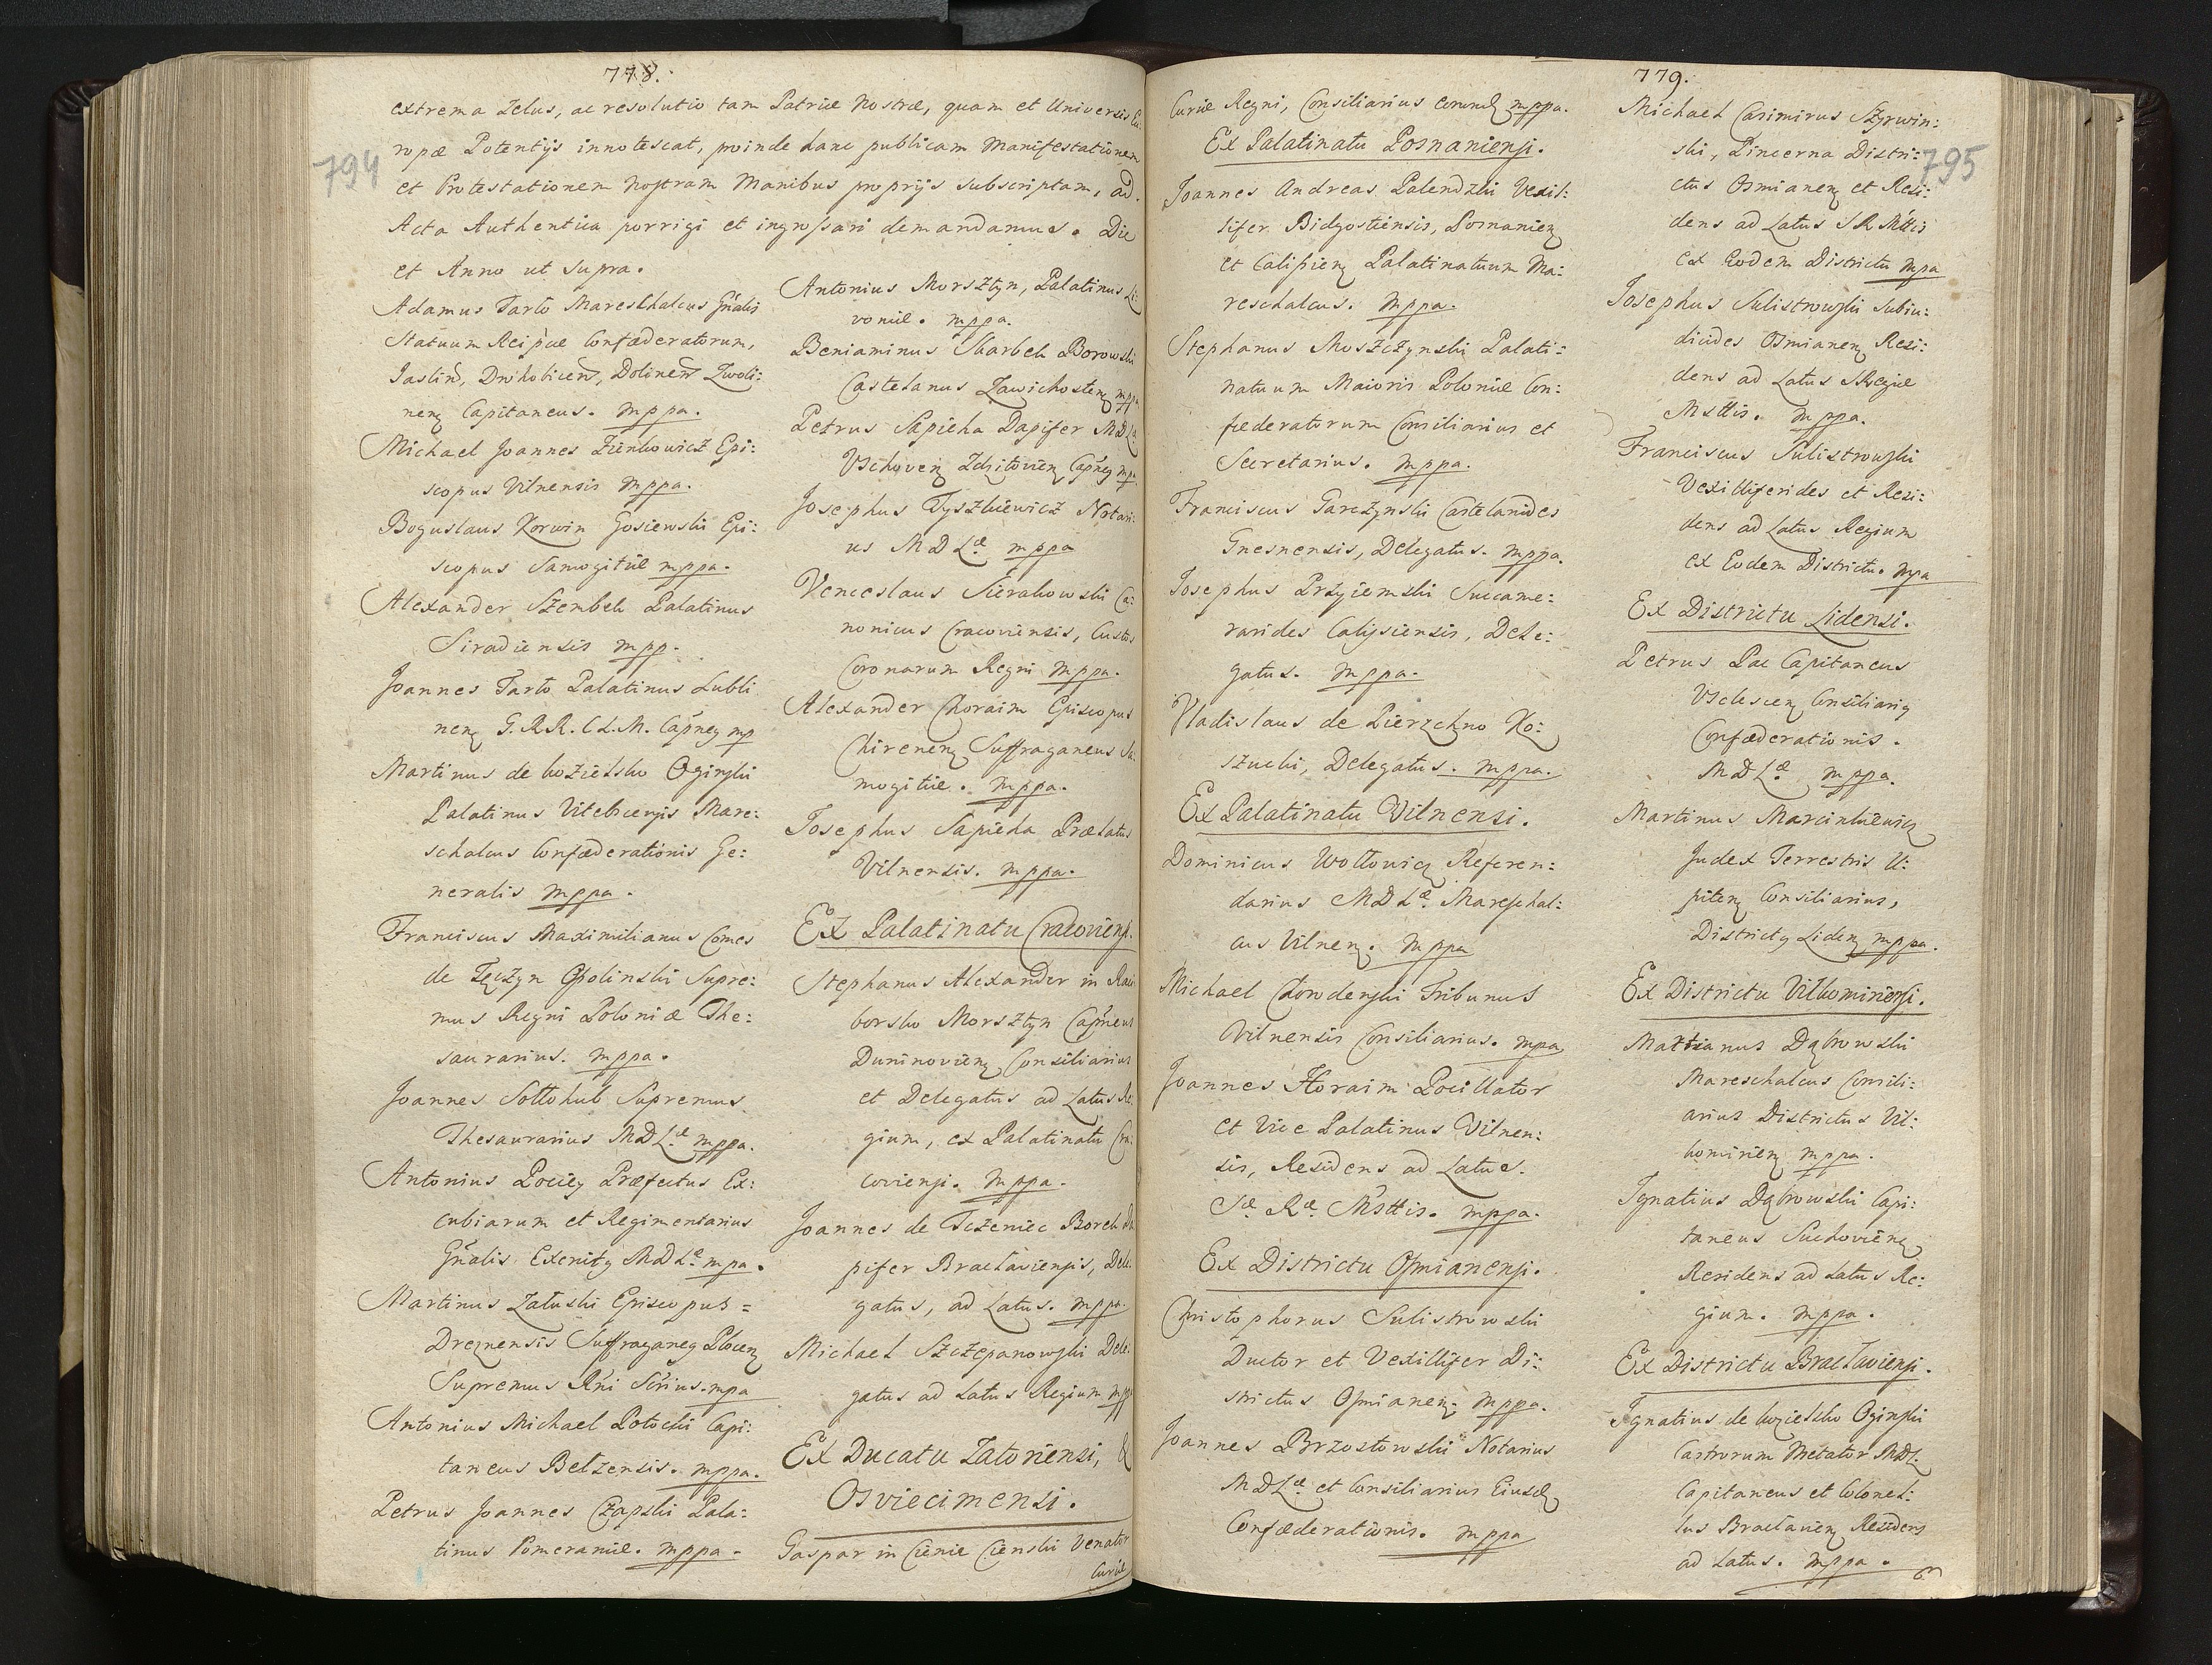 778.
794
extrema Zelus, ac resolutio tam Patriæ Nostræ, quam et Universis Eu:
ropæ Potentijs innotescat, proinde hanc publicam Manifestationem
et Protestationem Nostram Manibus proprijs subscriptam, ad
Acta Authentica porrigi et ingrossari demandamus. Die
et Anno ut supra.
Adamus Tarło Mareschalcus Gńalis
Statuum Reipůe Confæderatorum,
Jaslin, Drohobicen, Dolinen Zwoli:
nen Capitaneus. mppa.
Michael Joannes Zienkowicz Epi:
scopus Vilnensis mppa.
Boguslaus Korwin Gosiewski Epi:
scopus Samogitiæ mppa.
Alexander Szembek Palatinus
Siradiensis mpp.
Joannes Tarło Palatinus Lubli
nen G. R. R. C L. M. Capneg mp
Martinus de kozielsko Oginski
Palatinus Vitebscensis Mare:
schalcus Confæderationis Ge:
neralis mppa.
Franciscus Maximilianus Comes
de Tęczyn Ossolinski Supre:
mus Regni Poloniæ The:
saurarius. mppa.
Joannes Sołłohub Supremus
Thesaurarius MDLæ mppa.
Antonius Pociey Præfectus Ex:
cubiarum et Regimentarius
Gńalis Exercitg MDLæ mpa.
Martinus Załuski Episcopus =
Dreznensis Suffraganeg Plocen
Supremus Rńi Scrius. mpa
Antonius Michael Potocki Capi:
taneus Belzensis. mppa.
Petrus Joannes Czapski Pala:
tinus Pomeraniæ. mppa.
Antonius Morsztyn, Palatinus Li:
voniæ. mppa.
Beniaminus Skarbek Borowski
Castelanus Zawichosten mppa
Petrus Sapieha Dapifer MDLæ
Vschoven Zdzitovien Capneg mpa
Josephus Tyszkiewicz Notari:
us MDLæ mppa
Venceslaus Sierakowski Ca:
nonicus Cracoviensis, Custos
Coronarum Regni mppa.
Alexander Choraim Episcopus
Chirenen Suffraganeus Sa:
mogitiæ. mppa.
Josephus Sapieha Prælatus
Vilnensis. mppa.
Ex Palatinatu Cracoviensi.
Stephanus Alexander in Raci
borsko Morsztyn Capneus
Duninovien Consiliarius
et Delegatus ad Latus Re:
gium, ex Palatinatu Cra:
coviensi. mppa.
Joannes de Tczeniec Borek Da
pifer Bractaviensis, Dele:
gatus, ad Latus. mppa.
Michael Szczepanowski Dele:
gatus ad Latus Regium mppa
Ex Ducatu Zatoriensi, &
Osviecimensi.
Gaspar in Cienie Cienski Venator
Curiæ
779.
795
Curiæ Regni, Consiliarius mppa.
Ex Palatinatu Posnaniensi.
Joannes Andreas Palendzki Vexil:
lifer Bidgostiensis, Posnanien
et Calissien Palatinatuum Ma:
reschalcus. mppa.
Stephanus Moszczynski Palati:
natuum Maioris Poloniæ Con:
fæderatorum Consiliarius et
Secretarius. mppa.
Franciscus Garczynski Castelanides
Gnesnensis, Delegatus. mppa.
Josephus Przyiemski Succame:
rarides Calissiensis, Dele:
gatus. mppa.
Vladislaus de Pierzchno Ko:
szucki, Delegatus. mppa.
Ex Palatinatu Vilnensi.
Dominicus Wołłowicz Referen:
darius MDLæ. Mareschal:
cus Vilnen. mppa
Michael Chowdenski Tribunus
Vilnensis Consiliarius. mpa
Joannes Horaim Pocillator
et Vice Palatinus Vilnen:
sis, Residens ad Latus.
Sæ. Ræ. Msttis. mppa.
Ex Districtu Osmianensi.
Christophorus Sulistrowski
Ductor et Vexillifer Di:
strictus Osmianen. mppa.
Joannes Brzostowski Notarius
MDLæ et Consiliarius Eiusd
Confæderationis. mppa
Michael Casimirus Styrwin:
ski, Pincerna Distri:
ctus Osmianen et Resi:
dens ad Latus SR Msttis
ex Eodem Districtu mpa
Josephus Sulistrowski Subiu:
dicides Osmianen Resi:
dens ad Latus SRegiæ
Msttis. mppa.
Franciscus Sulistrowski
Vexilliferides et Resi:
dens ad Latus Regium
ex Eodem Districtu. mpa
Ex Districtu Lidensi.
Petrus Pac Capitaneus
Consiliarig
Confæderationis.
MDLæ mppa.
Martinus Marcinkiewicz
Judex Terrestris U:
piten Consiliarius,
Districtg Liden mppa.
Ex Districtu Vilkomiriensi.
Martianus Dąbrowski
Mareschalcus Consili:
arius Districtus Vil:
komirien mppa.
Ignatius Dąbrowski Capi:
taneus Suchovien
Residens ad Latus Re:
gium. mppa.
Ex Districtu Bracłaviensi.
Ignatius de kozielsko Oginski
Castrorum Metator MDL
Capitaneus et Colonel:
lus Braclavien Residens
ad Latus. mppa.